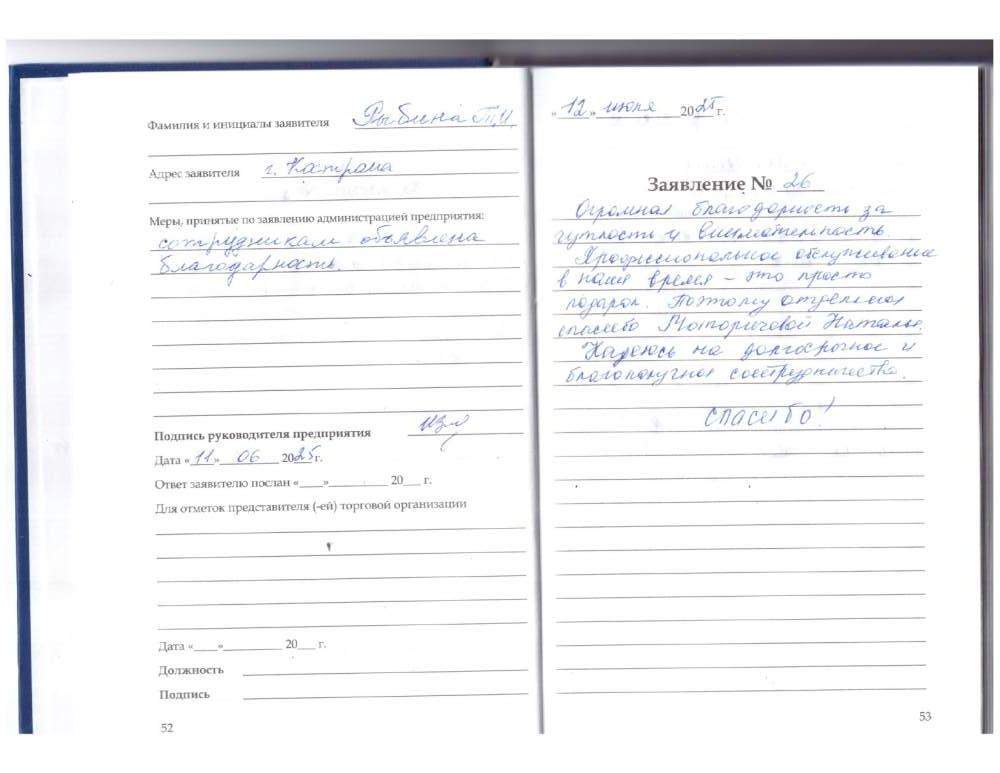 Фамилия и инициалы заявителя Рыбина Т.И.
Адрес заявителя г. Кострома
Меры, принятые по заявлению администрацией предприятия:
сотрудникам объявлена
благодарность.
Подпись руководителя предприятия
Дата «11» 06 2025г.
Ответ заявителю послан «___»__________ 20___ г.
Для отметок представителя (-ей) торговой организации
Дата «____»__________ 20___ г.
Должность
Подпись
52
«12» июня 2025 г.
Заявление № 26
Огромная благодарность за
чуткость и внимательность.
Профессиональное обслуживание
в наше время – это просто
подарок. Поэтому отдельная
спасибо Наталье.
Надеюсь на долгосрочное и
благополучное сотрудничество.
спасибо!
53